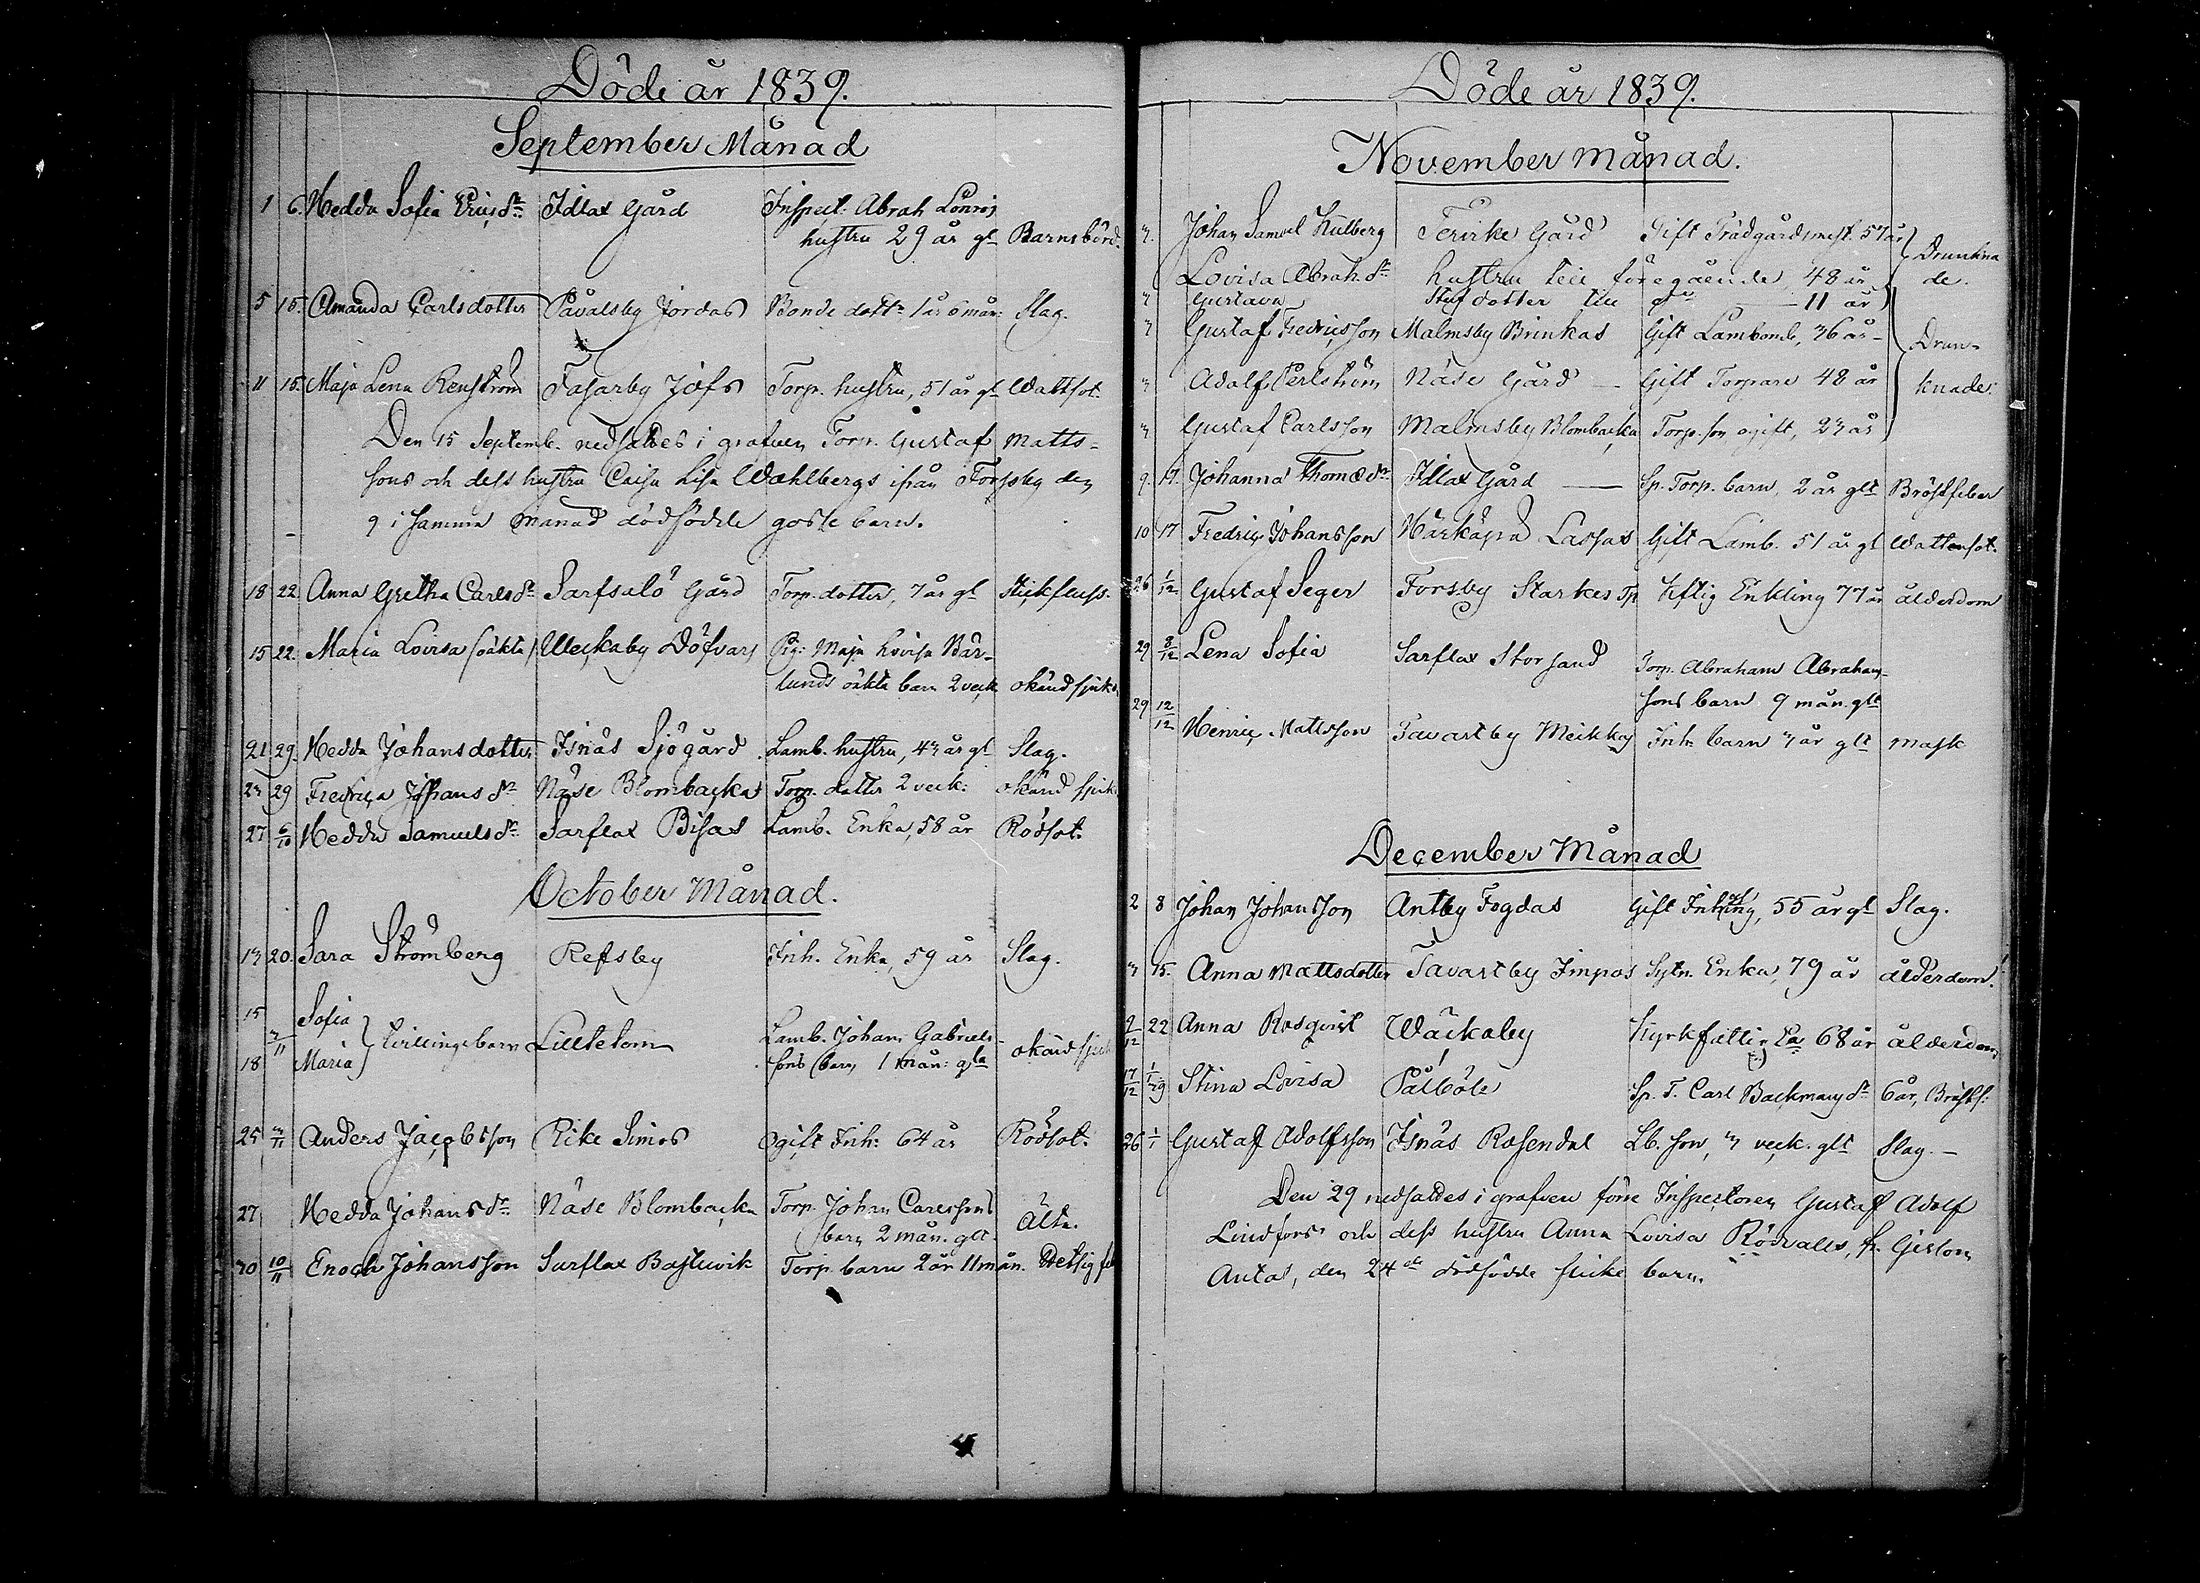 Döde år 1839.
September Månad
1 6. Hedda Sofia Ericsdr Idlax Gård Inspect: Abrah Lönros
hustru 29 år gl Barnsbörd.
5 15. Amanda Carlsdotter Påvalsby Jordas Bonde dottr 1 år 6 mån: Slag.
11 15. Maja Lena Renström Fasarby Jofs Torp. hustru, 51 år gl Wattsot.
Den 15 Septemb. nedsattes i grafven Torp. Gustaf Matts-
sons och dess hustru Caisa Lisa Wahlbergs ifrån Forsby den
9 i samma månad dödfödde gosse barn.
18 22. Anna Gretha Carlsdr Sarfsalö Gård Torp. dotter, 7 år gl Stickfluss.
15 22. Maria Lovisa (oäkta) Ulleckaby Döfvars Pig: Maja Lovisa Bär-
lunds oäkta barn 2 veck okänd sjukd.
21 29. Hedda Johansdotter Isnäs Sjögård Lamb. hustru, 43 år gl Slag.
23 29 Fredrica Johansdr Näse Blombacka Torp. dotter 2 veck: okänd sjuk.
27 6/10 Hedda Samuelsdr Sarflax Bisas Lamb. Enka, 58 år Rödsot.
October Månad.
13 20. Sara Strömberg Refsby Inh. Enka, 59 år Slag.
15 Sofia
3/11 } Tvillingebarn Lilletom Lamb. Johan Gabriels-
18 Maria sons barn 1 mån: gla okänd sjuk
25 3/11 Anders Jacobsson Rike Simos Ogift Inh: 64 år Rödsot.
27 Hedda Johansdr Näse Blombacka Torp. Johan Carlssons
barn 2 mån. glt. Ålt.
30 10/11 Enoch Johansson Sarflax Bastuvik Torp. barn 2 år 11 mån. Hetsig fe
Döde år 1839.
November månad.
3. Johan Samuel Hulberg Tervike Gård Gift Trädgårdsmest. 57 år } Drunkna
Lovisa Abrah.dr hustru till föregående, 48 år de.
3 Gustava Stuf dotter till dto — 11 år
3 Gustaf Fredricsson Malmsby Brinkas Gift Lambonde, 36 år - } Drun-
3 Adolf Perlström Näse Gård — Gift Torpare 48 år knade.
3 Gustaf Carlsson Malmsby Blombacka Torp. son ogift, 23 år
9. 17. Johanna Thomædr Idlax Gård — Sp. Torp. barn, 2 år glt Bröstfeber
10 17 Fredric Johansson Härkäpää Lassas Gift Lamb. 51 år gl Wattensot.
26 1/12 Gustaf Seger Forsby Starkes Tp Giftig Enkling 77 år ålderdom
29 8/12 Lena Sofia Sarflax Storsand Torp. Abraham Abraham-
sons barn 9 mån. glt
29 12/12 Henric Mattsson Tavastby Meikkas Inh: barn 3 år glt mask
December Månad
2 8 Johan Johansson Antby Fogdas Gift Inhysing, 55 år gl Slag.
3 15. Anna Mattsdotter Tavastby Impos Sytn. Enka, 79 år ålderdom.
9/12 22 Anna Rosqvist Wäckaby Kyrkfattig Ea 68 år ålderdom
17/12 29 Stina Lovisa Pålböle Sp. T. Carl Backmans dr 6 år, Bröstf:
26 1/1 Gustaf Adolfsson Isnäs Rosendal Lb. son, 3 veck. glt Slag. -
Den 29 nedsattes i grafven förre Inspectoren Gustaf Adolf
Lindfors och dess hustru Anna Lovisa Rödvalls, fr. Gislom
Antas, den 24de dödfödde flicke barn.